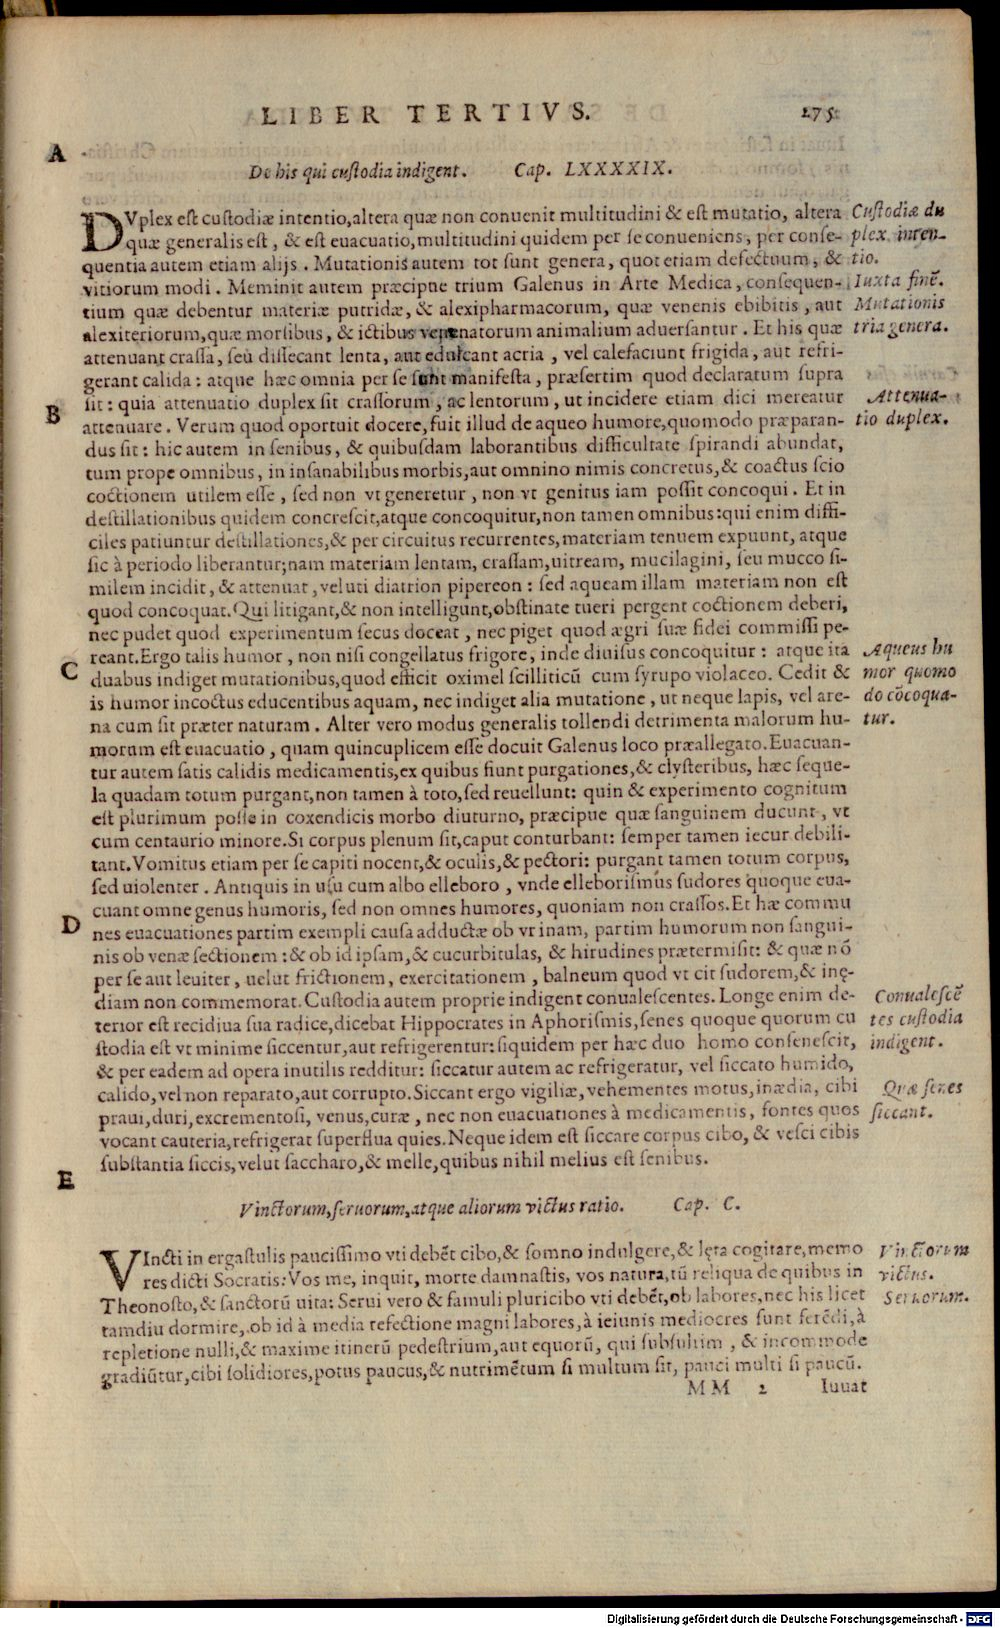 LIBER TERTIVS. 275
A
De his qui custodia indigent. Cap. LXXXXIX.
DVplex est custodiæ intentio, altera quæ non conuenit multitudini & est mutatio, altera
quæ generalis est, & est euacuatio, multitudini quidem per se conueniens, per conse-
quentia autem etiam alijs. Mutationis autem tot sunt genera, quot etiam defectuum, &
vitiorum modi. Meminit autem præcipue trium Galenus in Arte Medica, consequen-
tium quæ debentur materiæ putridæ, & alexipharmacorum, quæ venenis ebibitis, aut
alexiteriorum, quæ morsibus, & ictibus venenatorum animalium aduersantur. Et his quæ
attenuant crassa, seù dissecant lenta, aut edulcant acria, vel calefaciunt frigida, aut refri-
gerant calida: atque hæc omnia per se sunt manifesta, præsertim quod declaratum supra
sit: quia attenuatio duplex sit crassorum, ac lentorum, ut incidere etiam dici mereatur
attenuare. Verum quod oportuit docere, fuit illud de aqueo humore, quomodo præparan-
dus sit: hic autem in senibus, & quibusdam laborantibus difficultate spirandi abundat,
tum prope omnibus, in insanabilibus morbis, aut omnino nimis concretus, & coactus scio
coctionem utilem esse, sed non vt generetur, non vt genitus iam possit concoqui. Et in
destillationibus quidem concrescit, atque concoquitur, non tamen omnibus: qui enim diffi-
ciles patiuntur destillationes, & per circuitus recurrentes, materiam tenuem expuunt, atque
sic à periodo liberantur; nam materiam lentam, crassam, uitream, mucilagini, seu mucco si-
milem incidit, & attenuat, veluti diatrion pipereon: sed aqueam illam materiam non est
quod concoquat. Qui litigant, & non intelligunt, obstinate tueri pergent coctionem deberi,
nec pudet quod experimentum secus doceat, nec piget quod ægri suæ fidei commissi pe-
reant. Ergo talis humor, non nisi congellatus frigore, inde diuisus concoquitur: atque ita
duabus indiget mutationibus, quod efficit oximel scilliticũ cum syrupo violaceo. Cedit &
is humor incoctus educentibus aquam, nec indiget alia mutatione, ut neque lapis, vel are-
na cum sit præter naturam. Alter vero modus generalis tollendi detrimenta malorum hu-
morum est euacuatio, quam quincuplicem esse docuit Galenus loco præallegato. Euacuan-
tur autem satis calidis medicamentis, ex quibus fiunt purgationes, & clysteribus, hæc seque-
la quadam totum purgant, non tamen à toto, sed reuellunt: quin & experimento cognitum
est plurimum posse in coxendicis morbo diuturno, præcipue quæ sanguinem ducunt, vt
cum centaurio minore. Si corpus plenum sit, caput conturbant: semper tamen iecur debili-
tant. Vomitus etiam per se capiti nocent, & oculis, & pectori: purgant tamen totum corpus,
sed uiolenter. Antiquis in usu cum albo elleboro, vnde elleborismus sudores quoque eua-
cuant omne genus humoris, sed non omnes humores, quoniam non crassos. Et hæ commu
nes euacuationes partim exempli causa adductæ ob vrinam, partim humorum non sangui-
nis ob venæ sectionem: & ob id ipsam, & cucurbitulas, & hirudines prætermisit: & quæ nõ
per se aut leuiter, uelut frictionem, exercitationem, balneum quod vt cit sudorem, & inę-
diam non commemorat. Custodia autem proprie indigent conualescentes. Longe enim de-
terior est recidiua sua radice, dicebat Hippocrates in Aphorismis, senes quoque quorum cu
stodia est vt minime siccentur, aut refrigerentur: siquidem per hæc duo homo consenescit,
& per eadem ad opera inutilis redditur: siccatur autem ac refrigeratur, vel siccato humido,
calido, vel non reparato, aut corrupto. Siccant ergo vigiliæ, vehementes motus, inædia, cibi
praui, duri, excrementosi, venus, curæ, nec non euacuationes à medicamentis, fontes quos
vocant cauteria, refrigerat superflua quies. Neque idem est siccare corpus cibo, & vesci cibis
substantia siccis, velut saccharo, & melle, quibus nihil melius est senibus.
Custodiæ du
plex inten-
tio.
Iuxta finẽ.
Mutationis
tria genera.
B
Attenua-
tio duplex.
C
Aqueus hu
mor quomo
do cõcoqua-
tur.
D
Conualescẽ
tes custodia
indigent.
Quæ senes
siccant.
E
Vinctorum, seruorum, atque aliorum victus ratio. Cap. C.
VIncti in ergastulis paucissimo vti debẽt cibo, & somno indulgere, & lęta cogitare, memo
res dicti Socratis: Vos me, inquit, morte damnastis, vos natura, tũ reliqua de quibus in
Theonosto, & sanctorũ uita: Serui vero & famuli pluri cibo vti debẽt, ob labores, nec his licet
tamdiu dormire, ob id à media refectione magni labores, à ieiunis mediocres sunt ferẽdi, à
repletione nulli, & maxime itinerũ pedestrium, aut equorũ, qui subsultim, & incommode
gradiũtur, cibi solidiores, potus paucus, & nutrimẽtum si multum sit, pauci multi si paucũ.
Vinctorum
victus.
Seruorum.
MM 2 Iuuat
Digitalisierung gefördert durch die Deutsche Forschungsgemeinschaft - DFG